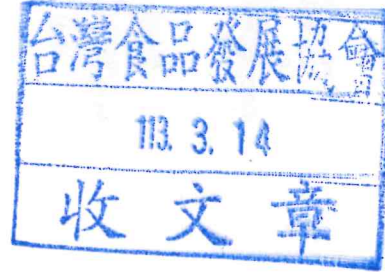 台灣食品發展協會
113. 3. 14
收文章